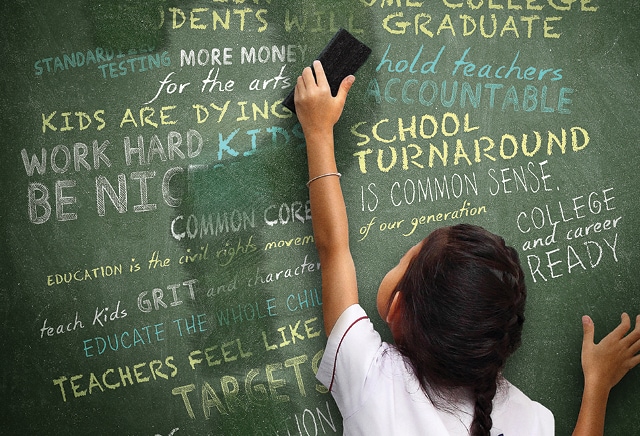 COME COLLEGE
STUDENTS WILL GRADUATE
STANDARDIZED
TESTING
MORE MONEY
for the arts
hold teachers
ACCOUNTABLE
KIDS ARE DYING
WORK HARD
BE NIC
KIDS
SCHOOL
TURNAROUND
IS COMMON SENSE.
of our generation
COMMON CORE
COLLEGE
and career
READY
EDUCATION is the civil rights movem
teach kids GRIT and character
EDUCATE THE WHOLE CHIL
TEACHERS FEEL LIKE
TARGETS